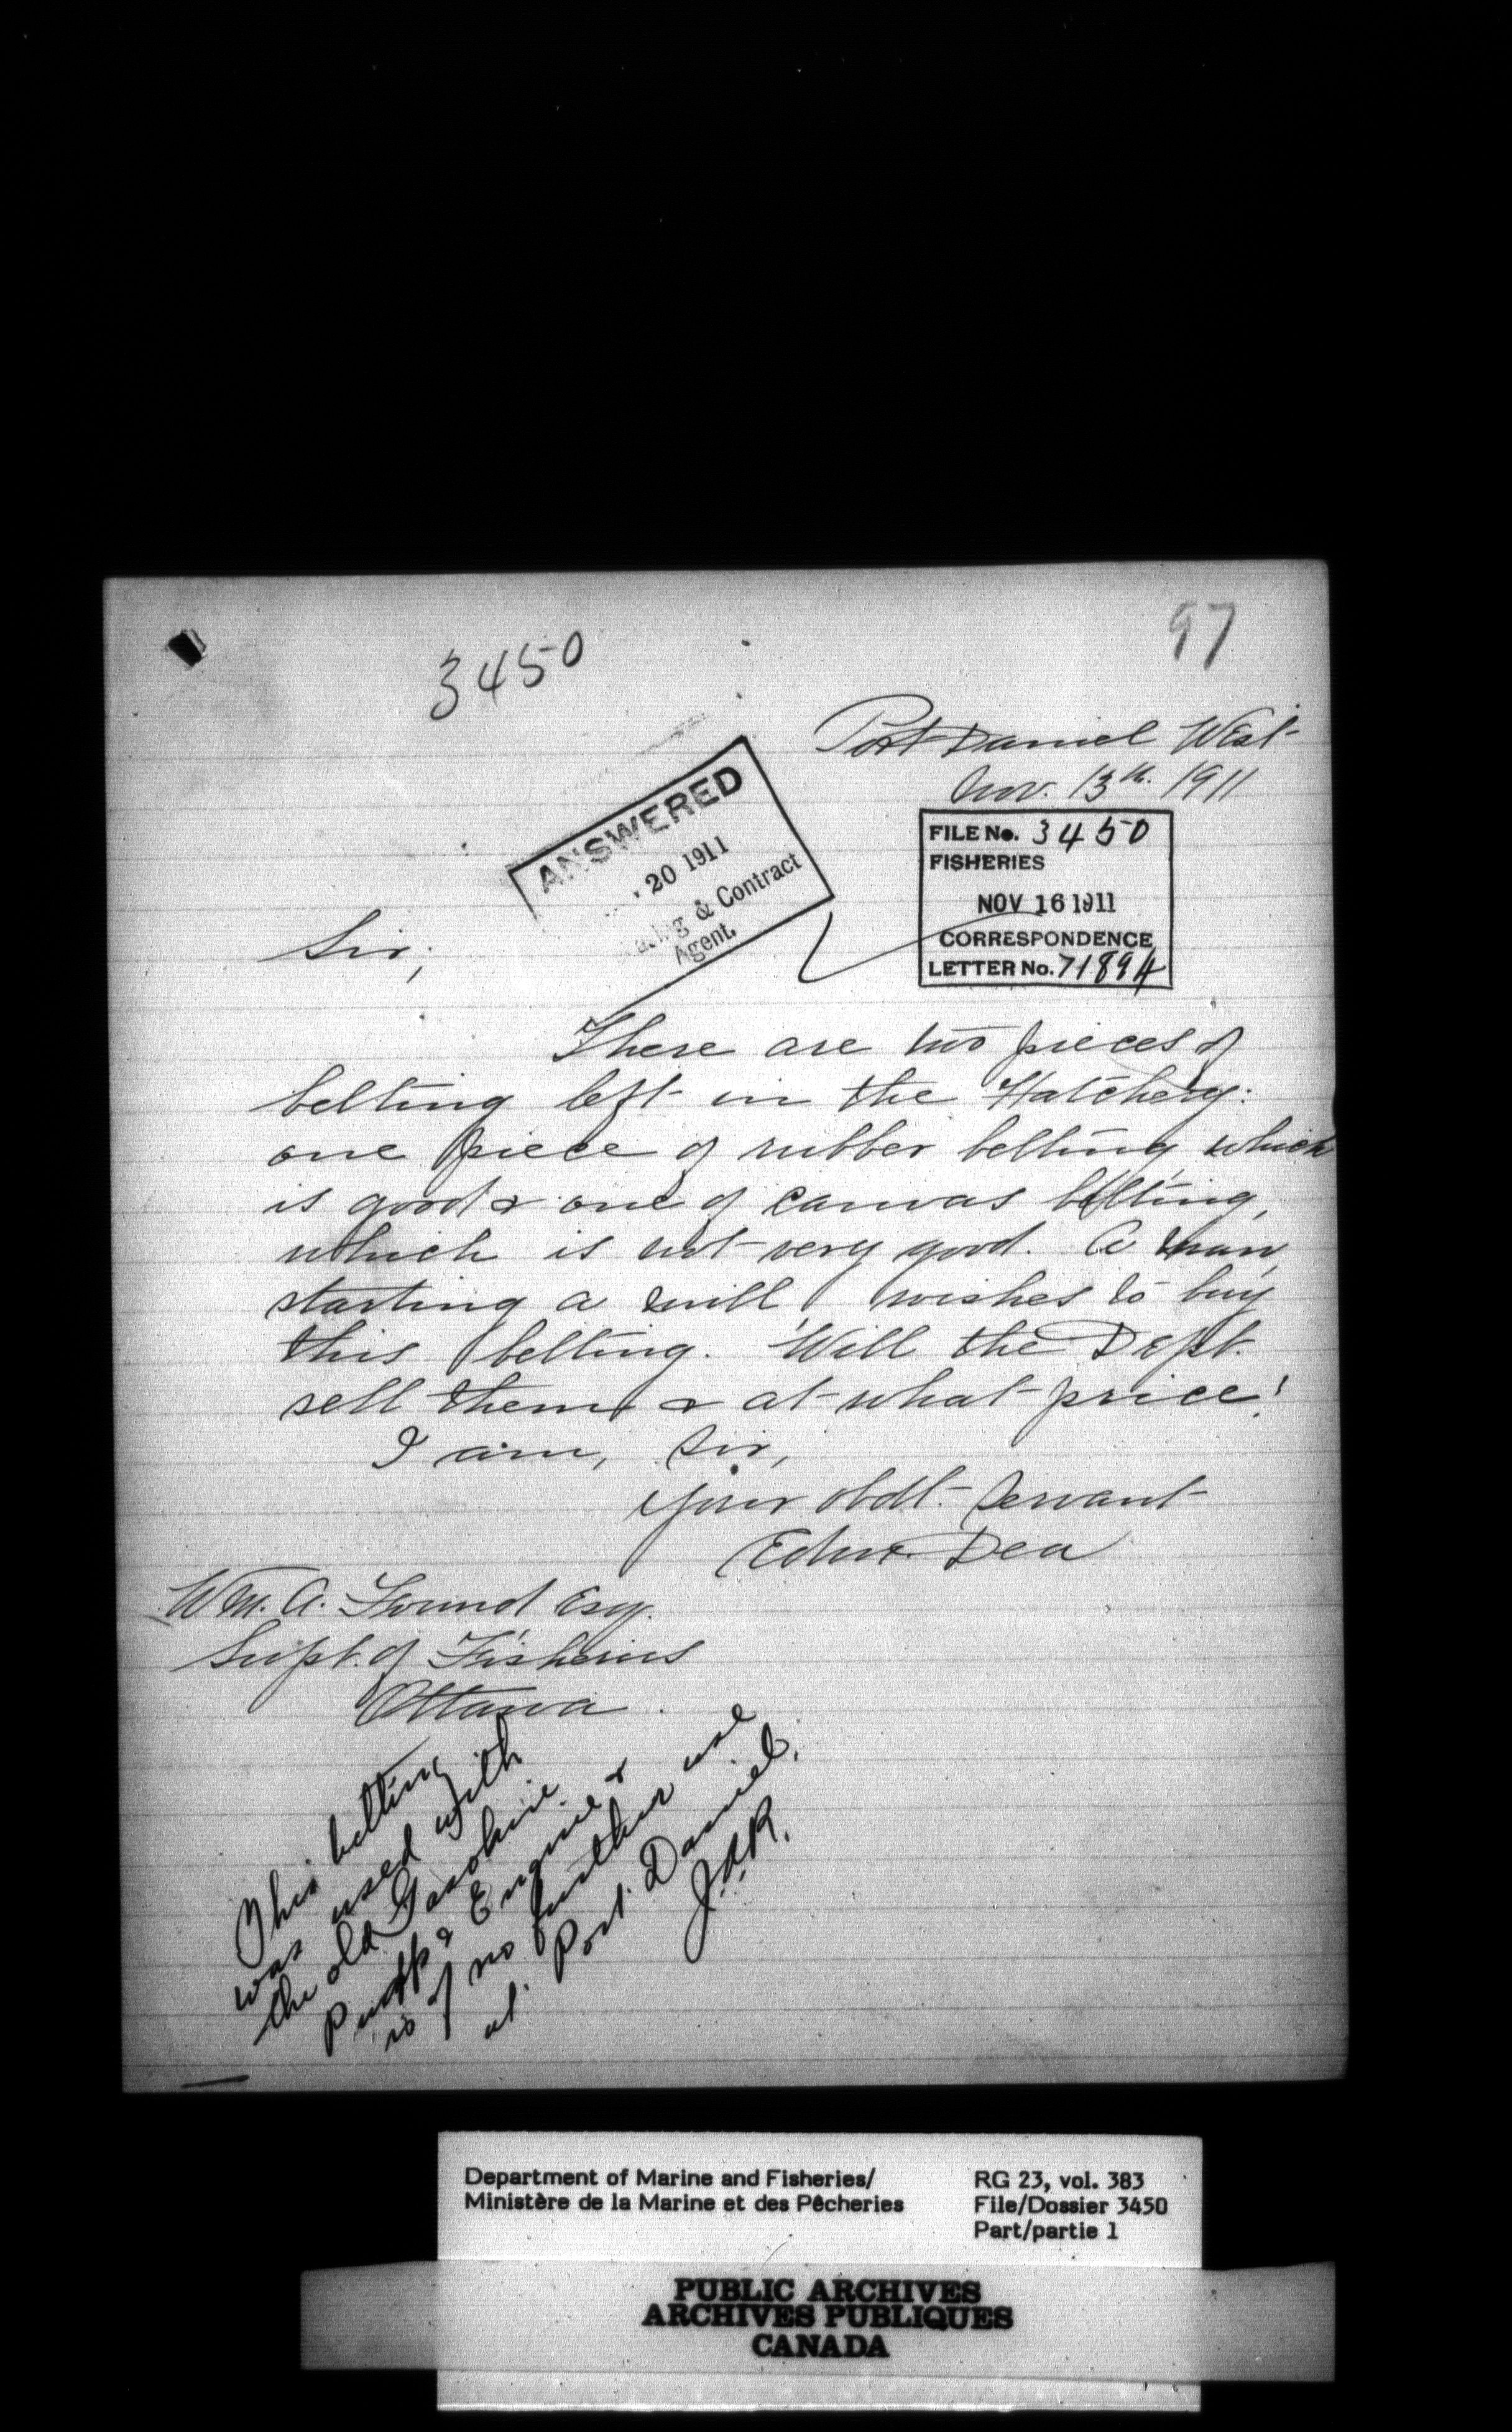 97
3450
Port Daniel West
Nov. 13th. 1911
ANSWERED
20 1911
& Contract
Agent.
FILE No. 3450
FISHERIES
NOV 16 1911
CORRESPONDENCE
LETTER No. 71894
Sir;
There are two pieces of
belting left in the Hatchery:
one piece of rubber belting which
is good & one of canvas belting,
which is not very good. A man,
starting a mill, wishes to buy
this belting. Will the Dept.
sell them & at what price?
I am, Sir,
Your obdt. Servant
Edw. Dea
Wm. A. Found Esq.
Supt. of Fisheries
Ottawa.
This belting
was used with
the old Gasoline
Pump & Engine &
is of no further use
at Port Daniel.
J.A.R.
Department of Marine and Fisheries/
Ministère de la Marine et des Pêcheries
RG 23, vol. 383
File/Dossier 3450
Part/partie 1
PUBLIC ARCHIVES
ARCHIVES PUBLIQUES
CANADA